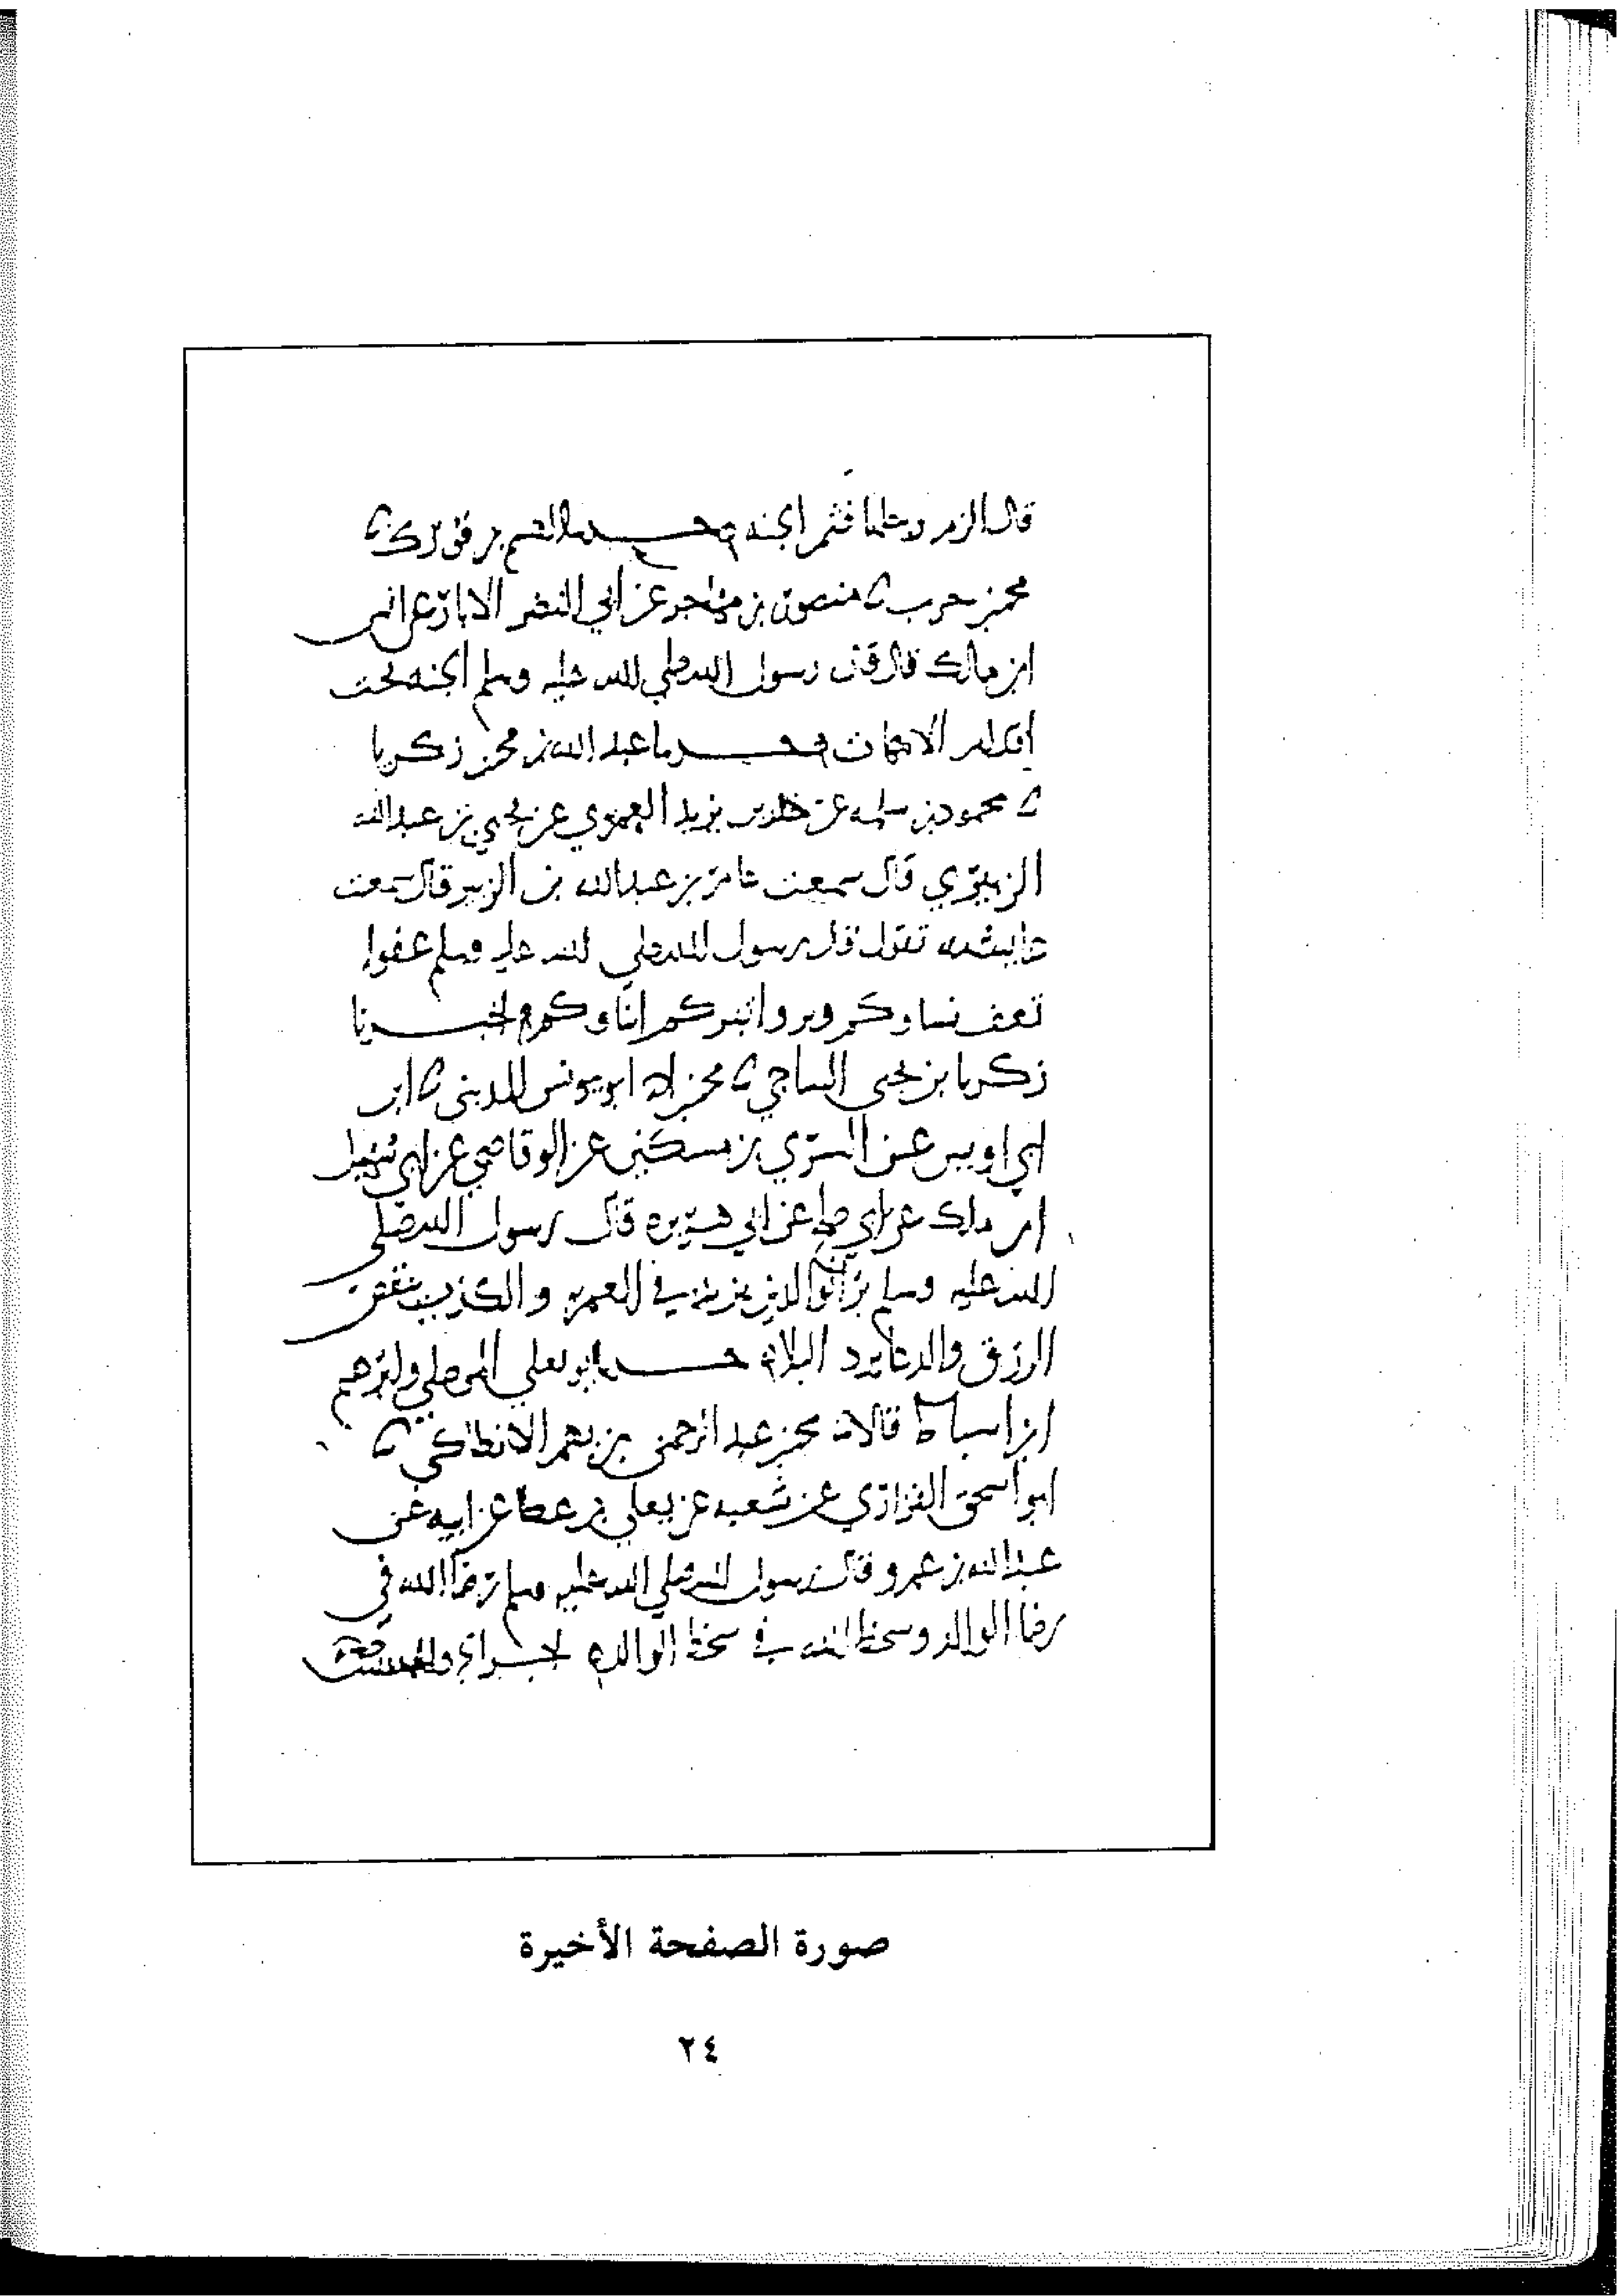 قال الزم رجلها فثم الجنة حدثنا القاسم بن فورك ثنا
محمد بن حرب ثنا منصور بن مهاجر عن ابي النضر الابار عن انس
ابن مالك قال قال رسول الله صلى الله عليه وسلم الجنة تحت
اقدام الامهات حدثنا عبد الله بن محمد بن زكريا
ثنا محمود بن سلمه عن خلد بن يزيد العمري عن يحيى بن عبد الله
الزبيري قال سمعت عامر بن عبد الله بن الزبير قال سمعت
عايشه تقول قال رسول الله صلى الله عليه وسلم عفوا
تعف نساوكم وبروا تبركم ابناوكم اخبرنا
زكريا بن يحيى الساجي ثنا محمد بن ابو يونس المديني ثنا ابن
ابي اويس عن السري بن مسكين عن الوقاصي عن ابي سهيل
ابن مالك عن ابي صالح عن ابي هريره قال رسول الله صلى
الله عليه وسلم بر الوالدين يزيد في العمر والكذب ينقص
الرزق والدعا يرد البلا حدثنا ابو يعلى الموصلي وابراهيم
ابن اسباط قالا ثنا محمد بن عبد الرحمن بن سهم الانطاكي ثنا
ابو اسحق الفزاري عن شعبه عن يعلى بن عطا عن ابيه عن
عبد الله بن عمرو قال رسول الله صلى الله عليه وسلم رضا الله في
رضا الوالد وسخط الله في سخط الوالد
صورة الصفحة الأخيرة
٢٤